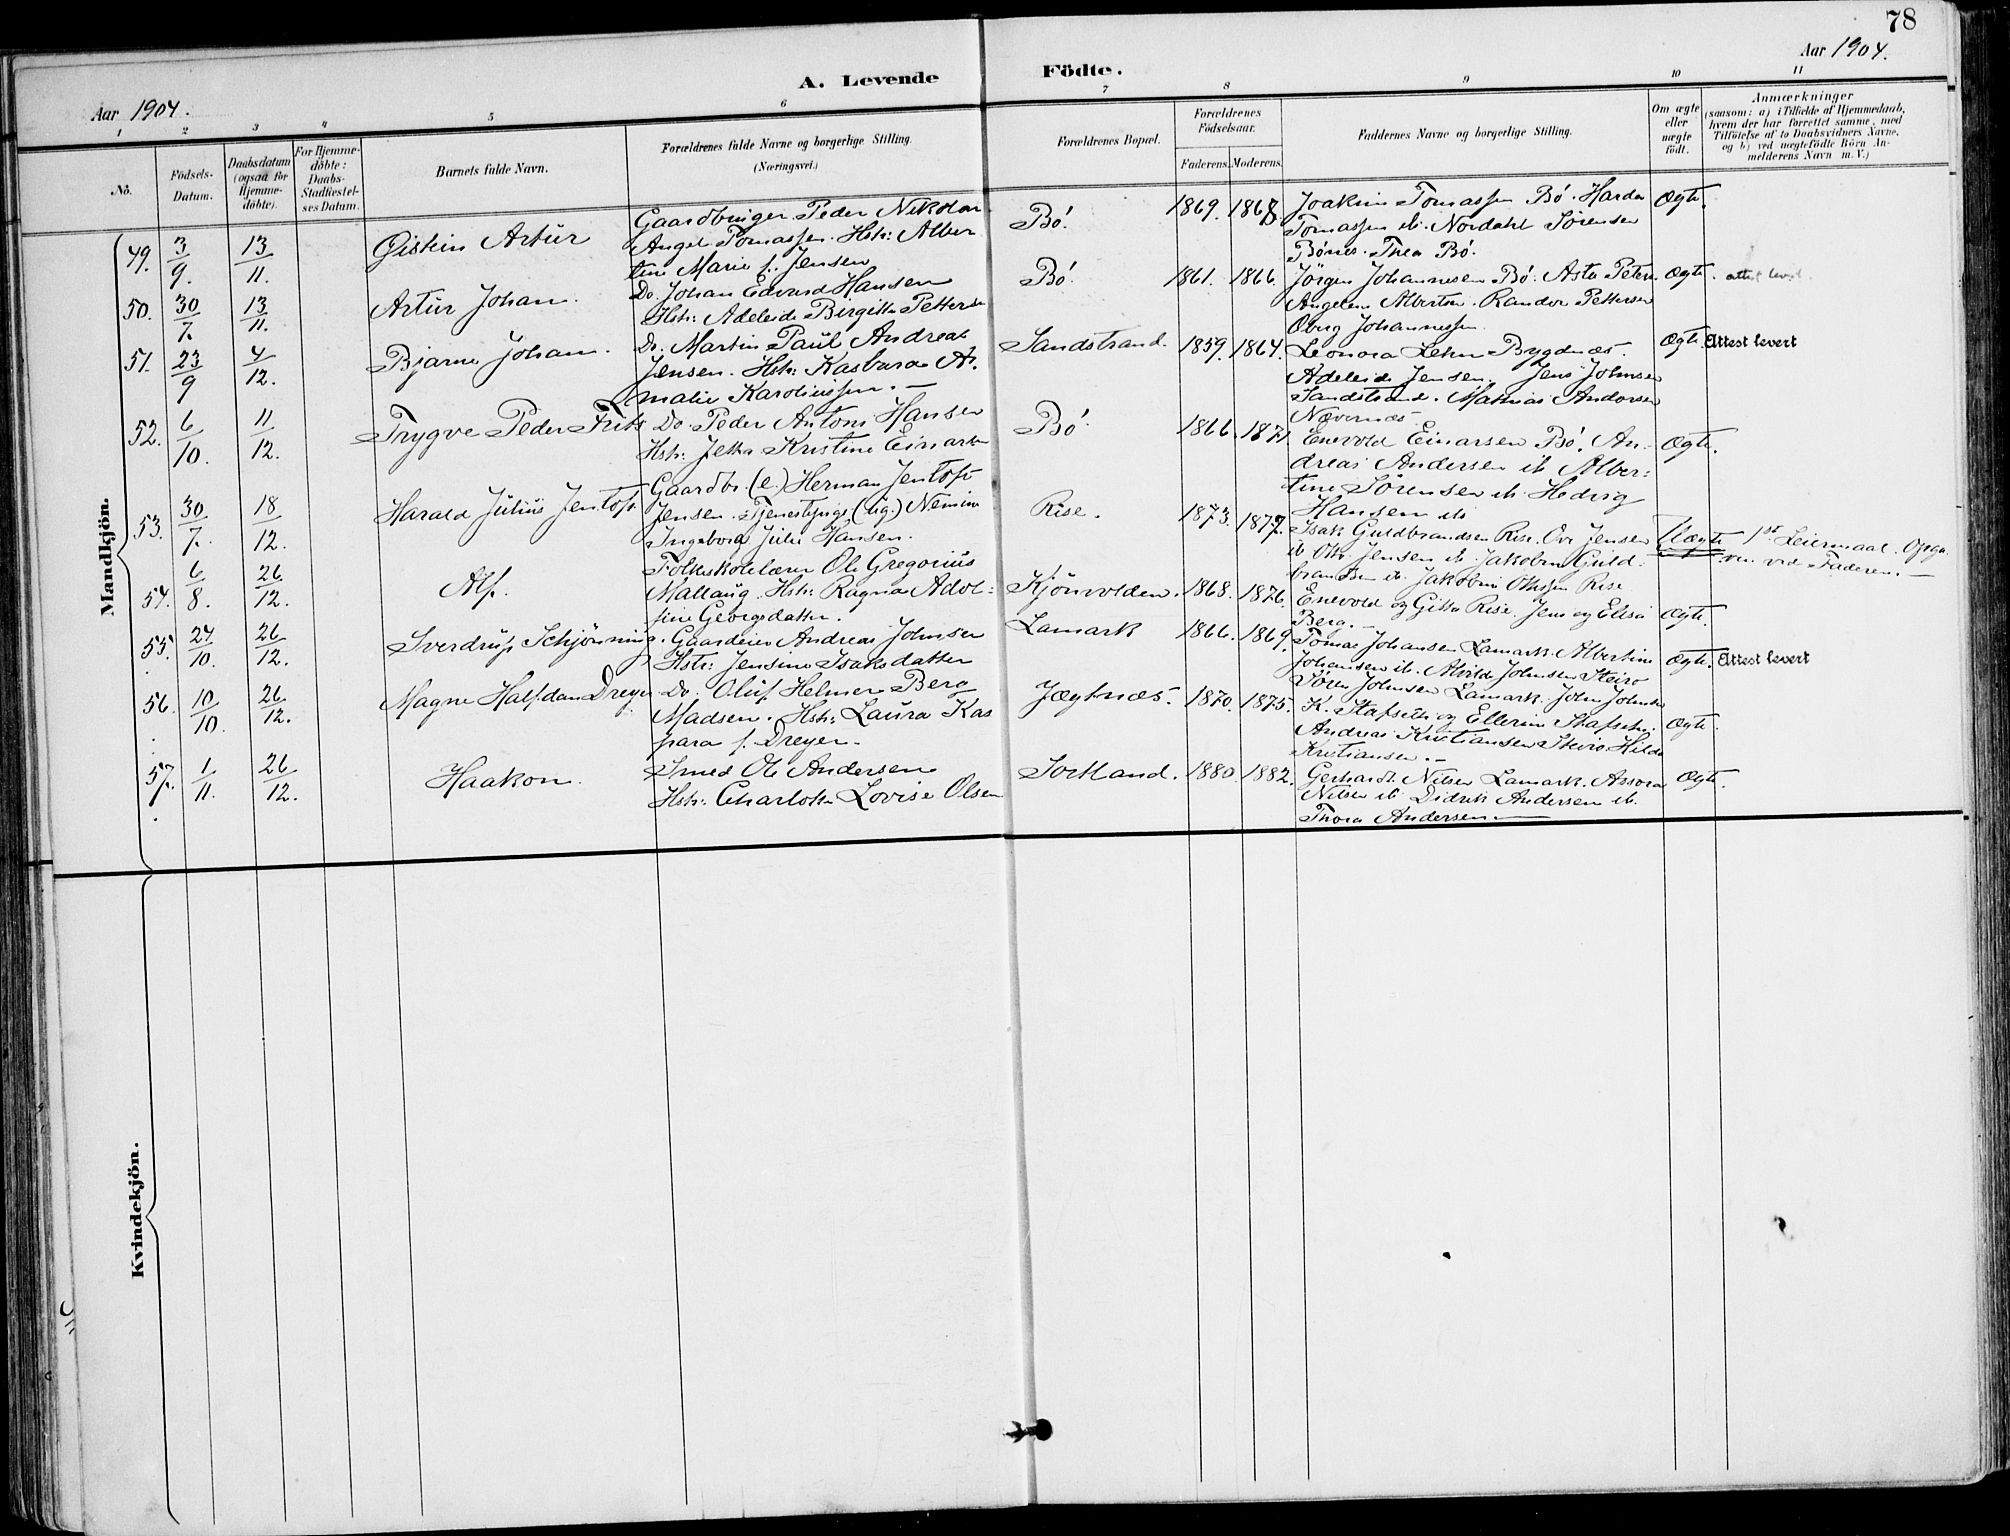 78
Aar 1904.
Aar 1904.
A. Levende Födte.
1 2 3 4 5 6 7 8 9 10 11
No.
Födsels-
Datum.
Daabsdatum
(ogsaa for
Hjemme-
döbte).
For Hjemme-
döbte:
Daabs-
Stadfæstel-
ses Datum.
Barnets fulde Navn.
Forældrenes fulde Navne og borgerlige Stilling.
(Næringsvei.)
Forældrenes Bopæl.
Forældrenes
Födselsaar.
Faderens. Moderens.
Faddernes Navne og borgerlige Stilling.
Om ægte
eller
uægte
födt.
Anmærkninger
(saasom: a) i Tilfælde af Hjemmedaab,
hvem der har forrettet samme, med
Tilföielse af to Daabsvidners Navne,
og b) ved uægtefödte Börn An-
melderens Navn m. V.)
Mandkjön.
49. 3/9. 13/11. Øistein Artur
Gaardbruger Peder Nikolai
Angel Tomassen. Hstr: Alber
tine Marie f. Jensen
Bø. 1869. 1868
Joakim Tomassen Bø. Harda
Tomassen ib. Nordahl Sørensen
Bønes. Thea Bø.
Ægte.
50. 30/7. 13/11. Artur Johan.
Do. Johan Edvard Hansen
Hstr: Adeleide Birgitte Pettersen
Bø. 1861. 1866.
Jørgen Johannesen Bø. Asta Peters
Angelsen Albertsen. Randor Pettersen
Oberg Johannessen
Ægte. attest levert
51. 23/9 4/12. Bjarne Johan.
Do. Martin Paul Andreas
Jensen. Hstr: Kasbara A.
malie Karoliussen. —
Sandstrand. 1859. 1864.
Leonora Lehn Bygdnæs.
Adeleide Jensen. Jens Johnsen
Sandstrand. Mathias Andorsen
Nævernæs.
Ægte. Attest levert
52. 6/10. 11/12. Trygve Peder Frits
Do. Peder Antoni Hansen
Hstr: Jetta Kristine Einarsen
Bø. 1866. 1871
Enevold Einarsen Bø. An-
dreas Andersen ib. Alber-
tine Sørensen ib. Hedvig
Hansen ib
Ægte.
53. 30/7. 18/12. Harald Julius Jentoft
Gaardbr. (e.) Herman Jentoft
Jensen. Tjenestepige (ug.) Nemine
Ingeborg Julie Hansen.
Rise. 1873. 1877.
Isak Guldbrandsen Rise. Ove Jensen
ib. Otto Jensen ib. Jakobine Guld-
brandsen ib. Jakobine Ottesen Rise
Uægte 1ste Leiermaal. Opgi-
ven ved Faderen. —
54. 6/8. 26/12. Alf.
Folkeskolelærer Ole Gregorius
Mallaug. Hstr: Ragna Adol-
fine Georgsdatter.
Kjönvolden. 1868. 1876.
Enevold og Gitta Rise. Jens og Elisa
Berg. —
Ægte.
55. 24/10. 26/12. Sverdrup Schjønning.
Gaardeier Andreas Johnsen
Hstr: Jensine Isaksdatter
Lamark 1866. 1869.
Tomas Johansen Lamark. Albertine
Johansen ib. Alvilde Johnsen Steiro
Sören Johnsen Lamark. John Johnsen
Ægte. Attest levert
56. 10/10. 26/12. Magne Halfdan Dreyer
Do. Oluf Helmer Berg
Madsen. Hstr: Laura Kas
para f. Dreyer.
Jægtnæs. 1870. 1875.
K. Stafseth og Ellerine Stafseth.
Andreas Kristiansen Steiro. Hilda
Kristiansen. —
Ægte.
57. 1/11. 26/12. Haakon.
Smed Ole Andersen
Hstr: Charlotte Lovise Olsen
Sortland. 1880. 1882.
Gerhardt Nilsen Lamark. Assora
Nilsen ib. Didrik Andersen ib.
Thora Andersen —
Ægte.
Kvindekjön.